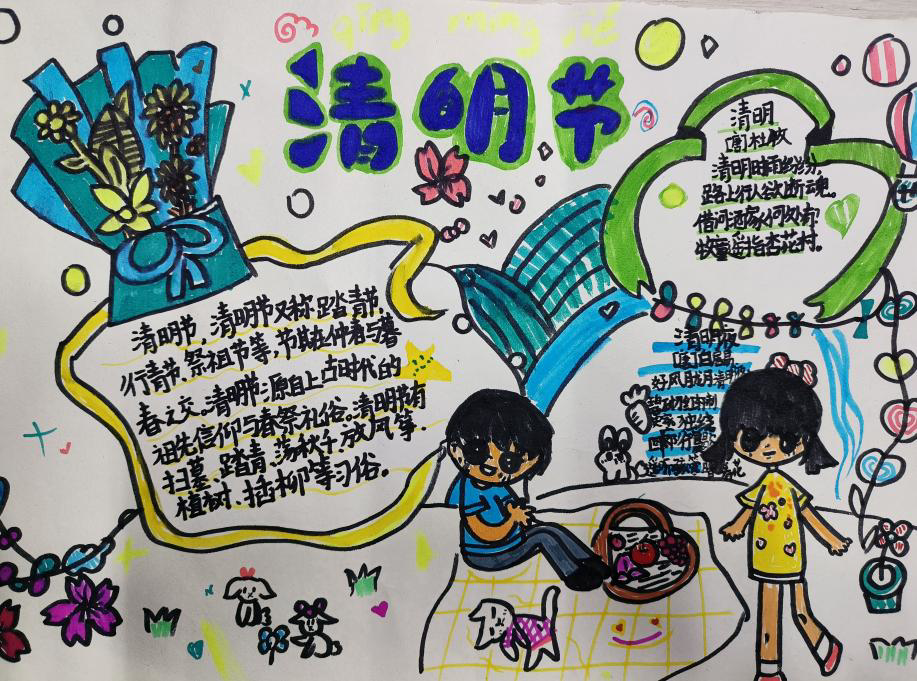 qīng míng jié
清明节
清明
[唐]杜牧
清明时雨纷纷,
路上行人欲断魂。
借问酒家何处有
牧童遥指杏花村。
清明节,清明节又称踏青节,
行青节,祭祖节等,节期在仲春与暮
春之交。清明节源自上古时代的
祖先信仰与春祭礼俗。清明节有
扫墓、踏青、荡秋千、放风筝、
植树、插柳等习俗。
清明夜
[唐]白居易
好风胧月清明夜